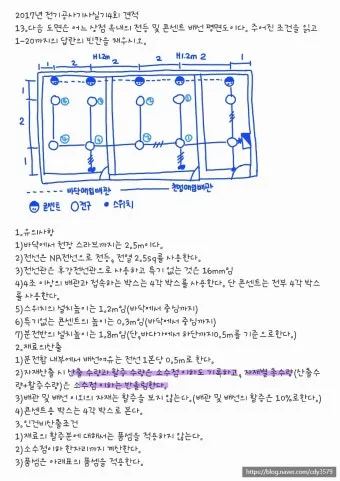 2017년 전기공사기사실기4회 견적
13.다음 도면은 어느 상점 옥내의 전등 및 콘센트 배선 평면도이다. 주어진 조건을 읽고
1~20까지의 답란의 빈칸을 채우시오.
1 2 H1.2m 2 2 H1.2m 2 1
1
2
1
바닥매입배관 천정매입배관
콘센트 전구 스위치
1.유의사항
1)바닥에서 천장 스라브까지는 2.5m이다.
2)전선은 NR전선으로 전등, 전열 2.5sq를 사용한다.
3)전선관은 후강전선관으로 사용하고 특기 없는 것은 16mm임
4)4조 이상의 배관과 접속하는 박스는 4각 박스를 사용한다. 단 콘센트는 전부 4각 박스
를 사용한다.
5)스위치의 설치높이는 1.2m임(바닥에서 중심까지)
6)특기없는 콘센트의 높이는 0.3m임(바닥에서 중심까지)
7)분전반의 설치높이는 1.8m임(단,바닥에서 하단까지0.5m를 기준으로한다.)
2.재료의산출
1)분전함 내부에서 배선여유는 전선 1본당 0.5m로 한다.
2)자재산출 시 산출 수량과 할증 수량은 소수점이하도 기록하고, 자재별 총수량(산출수
량+할증수량)은 소수점이하는 반올림한다.
3)배관 및 배선 이외의 자재는 할증을 보지 않는다.(배관 및 배선의 할증은 10%로한다)
4)콘센트용 박스는 4각 박스로 본다.
3.인건비산출조건
1)재료의 할증분에 대해서는 품셈을 적용하지 않는다.
2)소수점이하 한자리까지 계산한다.
3)품셈은 아래표의 품셈을 적용한다.
https://blog.naver.com/cdy3579